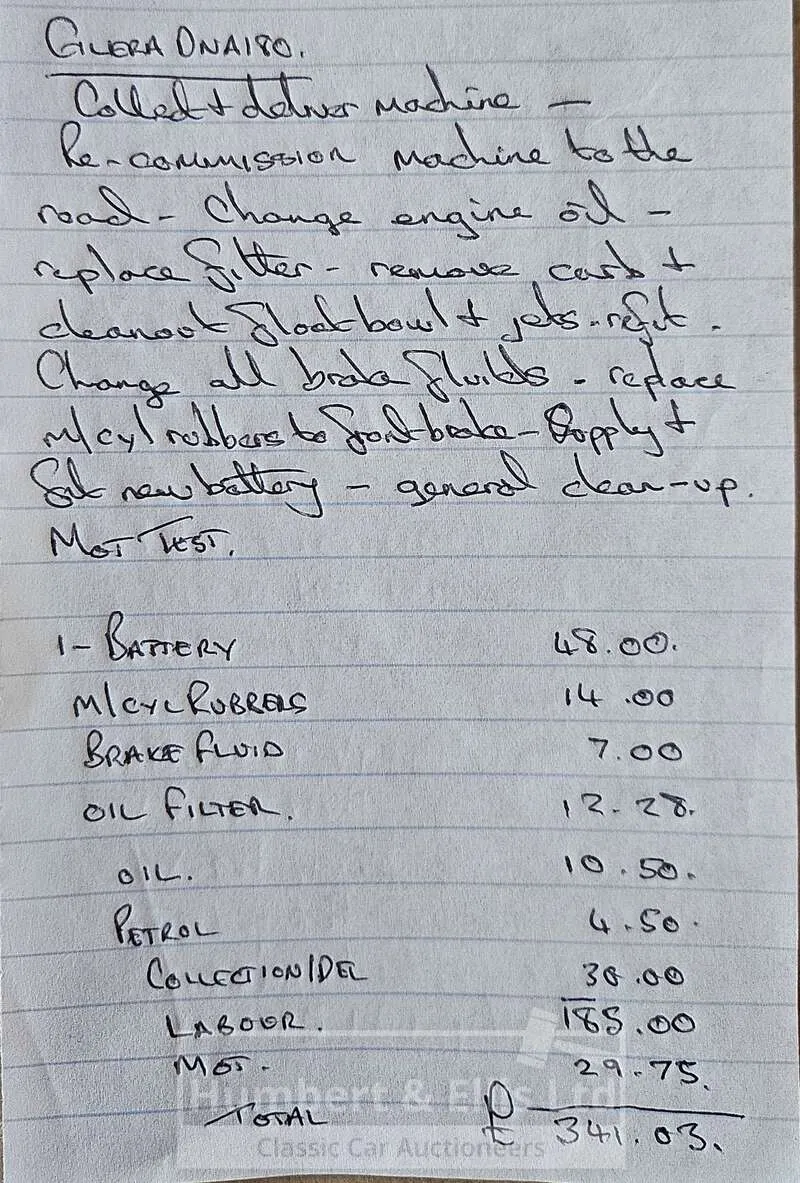 GILERA DNA180.
Collect + deliver machine —
Re-commission machine to the
road - Change engine oil -
replace filter - remove carb +
cleanout floatbowl + jets - refit.
Change all brake fluids - replace
m/cyl rubbers to front brake - Supply +
fit new battery - general clean-up.
MOT TEST.
1 - BATTERY 48.00.
M/CYL RUBBERS 14.00
BRAKE FLUID 7.00
OIL FILTER. 12-28.
OIL. 10.50.
PETROL 4.50.
COLLECTION/DEL 30.00
LABOUR. 185.00
MOT. 29-75.
TOTAL £ 341.03.
Humbert & Ellis Ltd
Classic Car Auctioneers